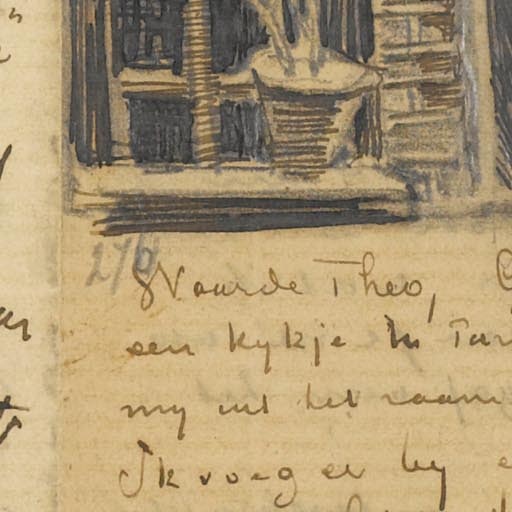 276
Waarde Theo,
een kykje in
my uit het raam
Ik voeg er by